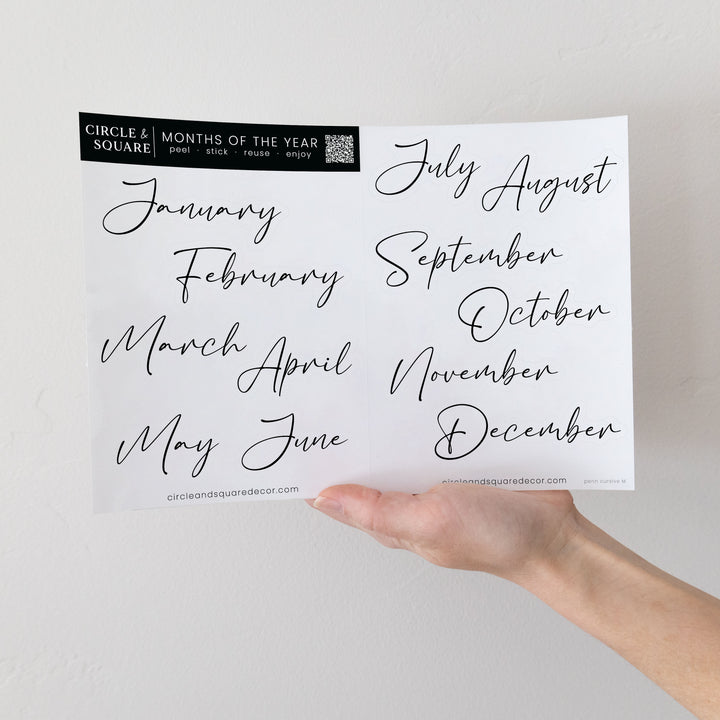 CIRCLE &
SQUARE
MONTHS OF THE YEAR
peel · stick · reuse · enjoy
January
February
March
April
May June
circleandsquaredecor.com
July
August
September
October
November
December
circleandsquaredecor.com
penn cursive M